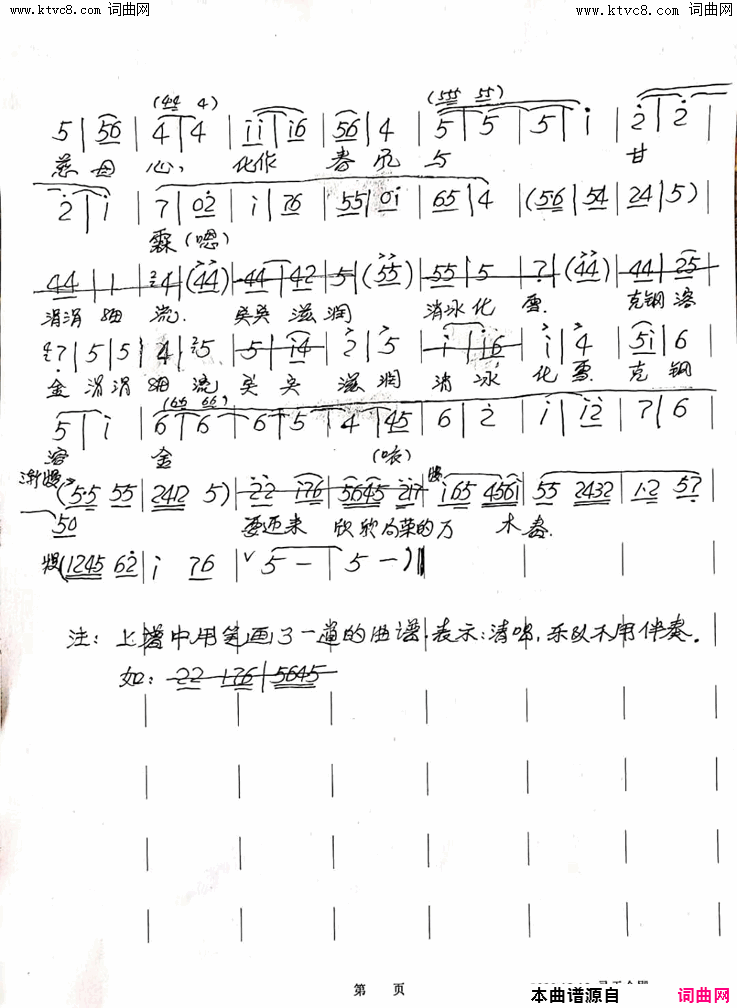 www.ktvc8.com 词曲网 www.ktvc8.com 词曲网
(44 4) (555 55)
5 | 56 | 4 | 4 | ii | i6 | 56 | 4 | 5 | 5 | 5 | i | 2 | 2 |
慈 母 心, 化作 春风 与 甘
2 | i | 7 | 02 | i | 76 | 55 | 0i | 65 | 4 | (56 | 54 | 24 | 5) |
霖(嗯)
44 | 1 | 4 | (44) | 44 | 42 | 5 | (55) | 55 | 5 | 7 | (44) | 44 | 25 |
涓涓 细 流. 滋 润 消冰化 雪. 克钢溶
7 | 5 | 5 | 4 | 5 | 5 | i4 | 2 | 5 | i | i6 | i | 4 | 5i | 6
金 涓 涓 细 流 滋 润 消 冰 化 雪 克 钢
(66 66)
5 | i | 6 | 6 | 6 | 5 | 4 | 45 | 6 | 2 | i | i2 | 7 | 6
溶 金 (咳)
渐慢 (5·5 55 | 2412 5) | 22 i76 | 5645 217 | i65 456i | 55 2432 | 1·2 57 |
50 要迎来 欣欣向荣的万 木春.
慢(1245 62 | i 76 | V 5 — | 5 —)‖
注: 上谱中用笔画了一道的曲谱, 表示:清唱, 乐队不用伴奏.
如: 22 176 | 5645
第 页
本曲谱源自 词曲网